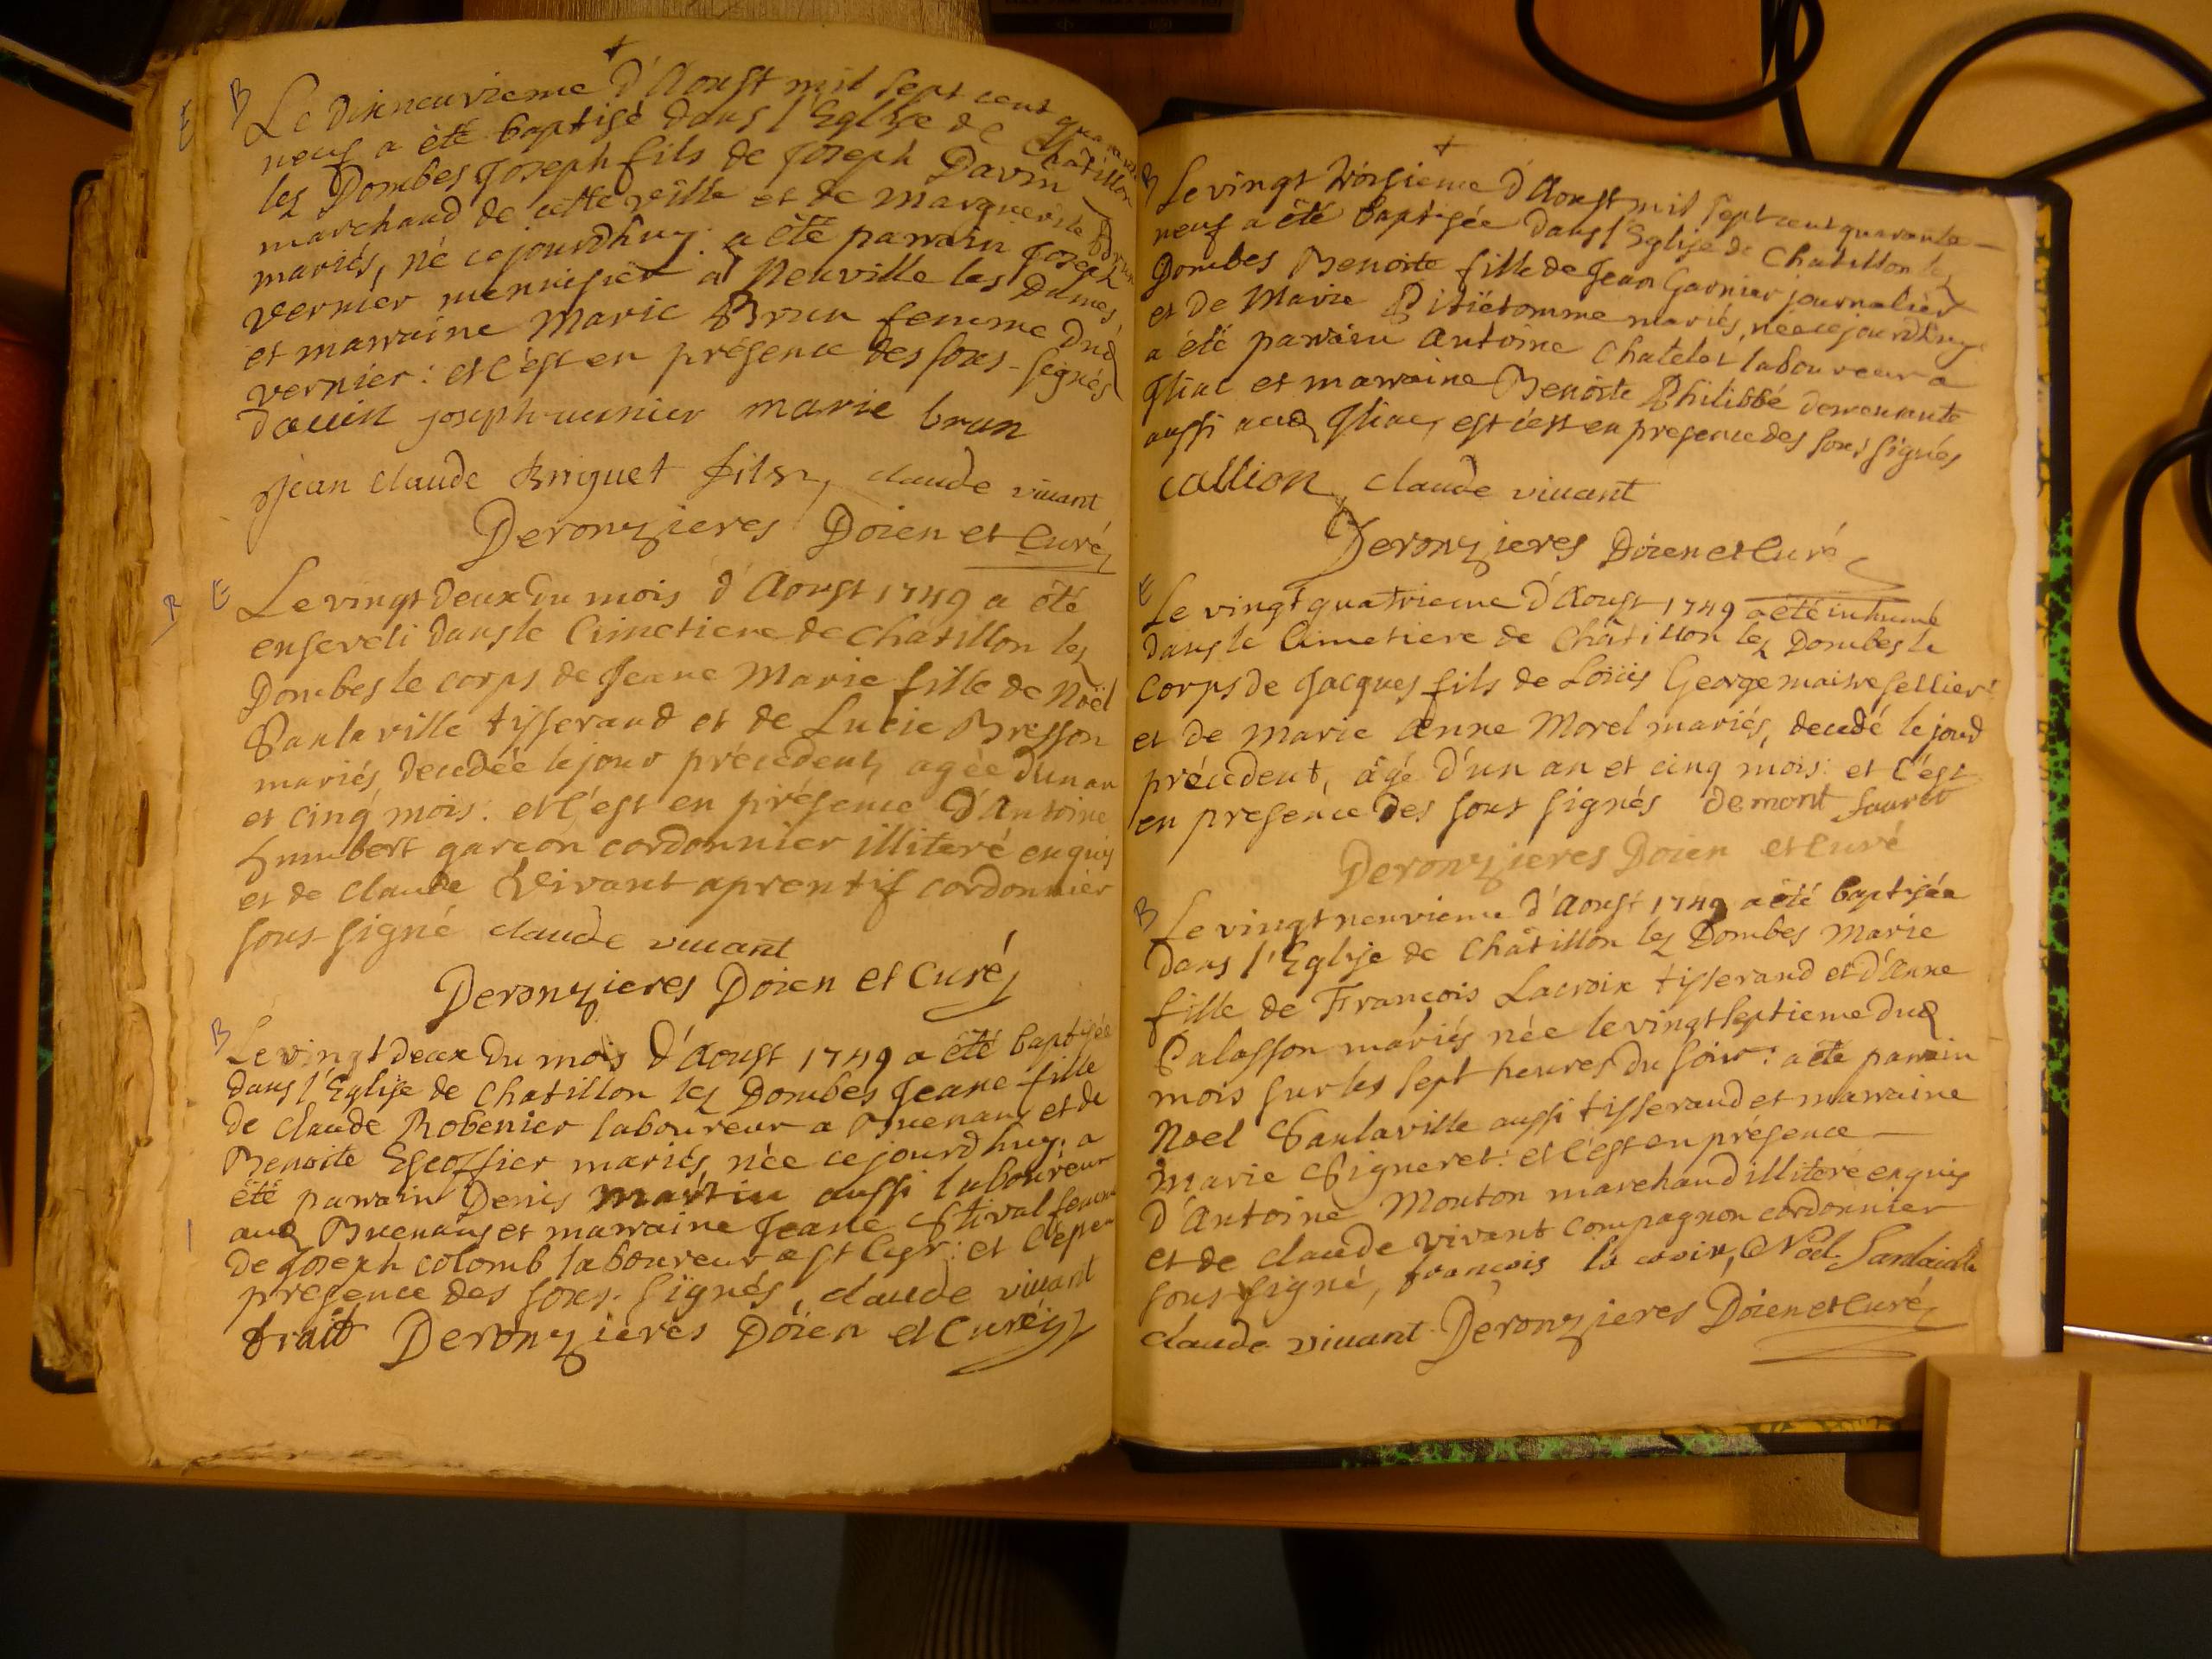 B Le dixneuvieme d'Aoust mil sept cent quarante
neuf a été baptisé dans l'Eglise de Châtillon
lez Dombes Joseph fils de Joseph Davin
marchand de cette ville et de Marguerite Brun
mariés, né cejourdhuy: a été parrain Joseph
Vernier menuisier a Neuville les Dames,
et marraine Marie Brun femme dud
Vernier: et c'est en présence des sous-signés
dauin joseph uernier marie brun
jean claude Briguet fils, claude viuant
Deronzieres Doien et Curé
E Le vingt deux du mois d'Aoust 1749 a été
enseveli dans le Cimetiere de Chatillon lez
Dombes le corps de Jeane Marie fille de Noël
Sanlaville tisserand et de Lucie Bresson
mariés, decedée le jour précedent, agée d'un an
et cinq mois: et c'est en présence d'Antoine
humbert garçon cordonnier illiteré enquis
et de Claude Vivant aprentif cordonnier
sous signé claude viuant
Deronzieres Doien et Curé
B Le vingt deux du mois d'Aoust 1749 a été baptisée
dans l'Eglise de Chatillon lez Dombes Jeane fille
de Claude Robenier laboureur a Buenans et de
Benoite mariés, née cejourdhuy: a
été parrain Denis Martin aussi laboureur
aud Buenans et marraine Jeane Stival femme
de Joseph Colomb laboureur a St Cyr: et c'est en
presence des sous-signés, claude viuant
trait Deronzieres Doien et Curé
B Le vingt troisieme d'Aoust mil sept cent quarante-
neuf a été baptisée dans l'Eglise de Chatillon lez
Dombes Benoite fille de Jean Garnier journalier
et de Marie Pitiétomme mariés, née cejourdhuy
a été parrain Antoine Chatelet laboureur a
Jliac et marraine Benoite Philibbé demeurante
aussi aud Jliac, est c'est en presence des sous signés
callion claude viuant
Deronzieres Doien et Curé
E Le vingt quatrieme d'Aoust 1749 a été inhumé
dans le Cimetiere de Châtillon lez Dombes le
corps de Jacques fils de Loüis George maitre sellier
et de Marie Anne Morel mariés, decedé le jour
précedent, âgé d'un an et cinq mois: et c'est
en presence des sous signés demont
Deronzieres Doien et Curé
B Le vingt neuvieme d'Aoust 1749 a été baptisée
dans l'Eglise de Châtillon lez Dombes Marie
fille de François Lacroix tisserand et d'Anne
Palasson mariés née le vingt septieme dud
mois sur les sept heures du soir: a été parrain
Noel Sanlaville aussi tisserand et marraine
Marie Signeret: et c'est en présence
d'Antoine Monton marchand illiteré enquis
et de Claude Vivant compagnon cordonnier
sous signé, francois la croix, Noel Sanlaville
claude viuant Deronzieres Doien et Curé